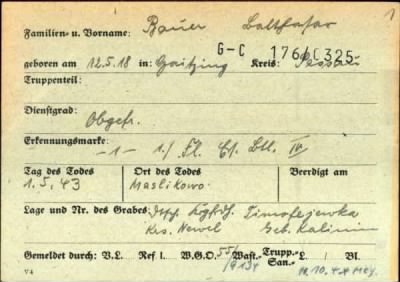 1
Familien- u. Vorname: Bauer Balthasar
G-C 176/0325
geboren am 12.5.18 in: Gaitzing Kreis: Passau
Truppenteil:
Dienstgrad: Obgefr.
Erkennungsmarke: -1- 1./ Fl. Ers. Btl. IV
Tag des Todes Ort des Todes Beerdigt am
1.5.43 Maslikowo
Lage und Nr. des Grabes: Dtsch. Timofejewka
Krs. Newel Geb. Kalinin
Gemeldet durch: V.L. Ref I. W.G.O. 55/ Wast.- Trupp.- L./ Bl.
7134 San.-
V 4